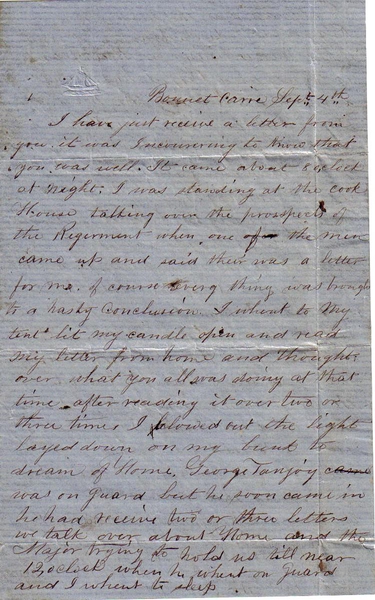 Bonnet Carre Sept 4th
I have just receive a letter from
you. it was Encouraging to know that
you was well. It came about 8 oclock
at night; I was standing at the cook
House talking over the prospects of
the Regirment when one of the men
came up and said their was a letter
for me. of course Every thing was brought
to a hasty Conclusion. I whent to My
tent lit my candle open and read
My letter from home and thought
over what you all was doing at that
time after reading it over two or
three times I blowed out the light
layed down on my bunk to
dream of Home. George came
was on guard but he soon came in
he had receive two or three letters
we talk over about Home and the
Major trying to hold us till near
12,oclock when he whent on Guard
and I whent to sleep